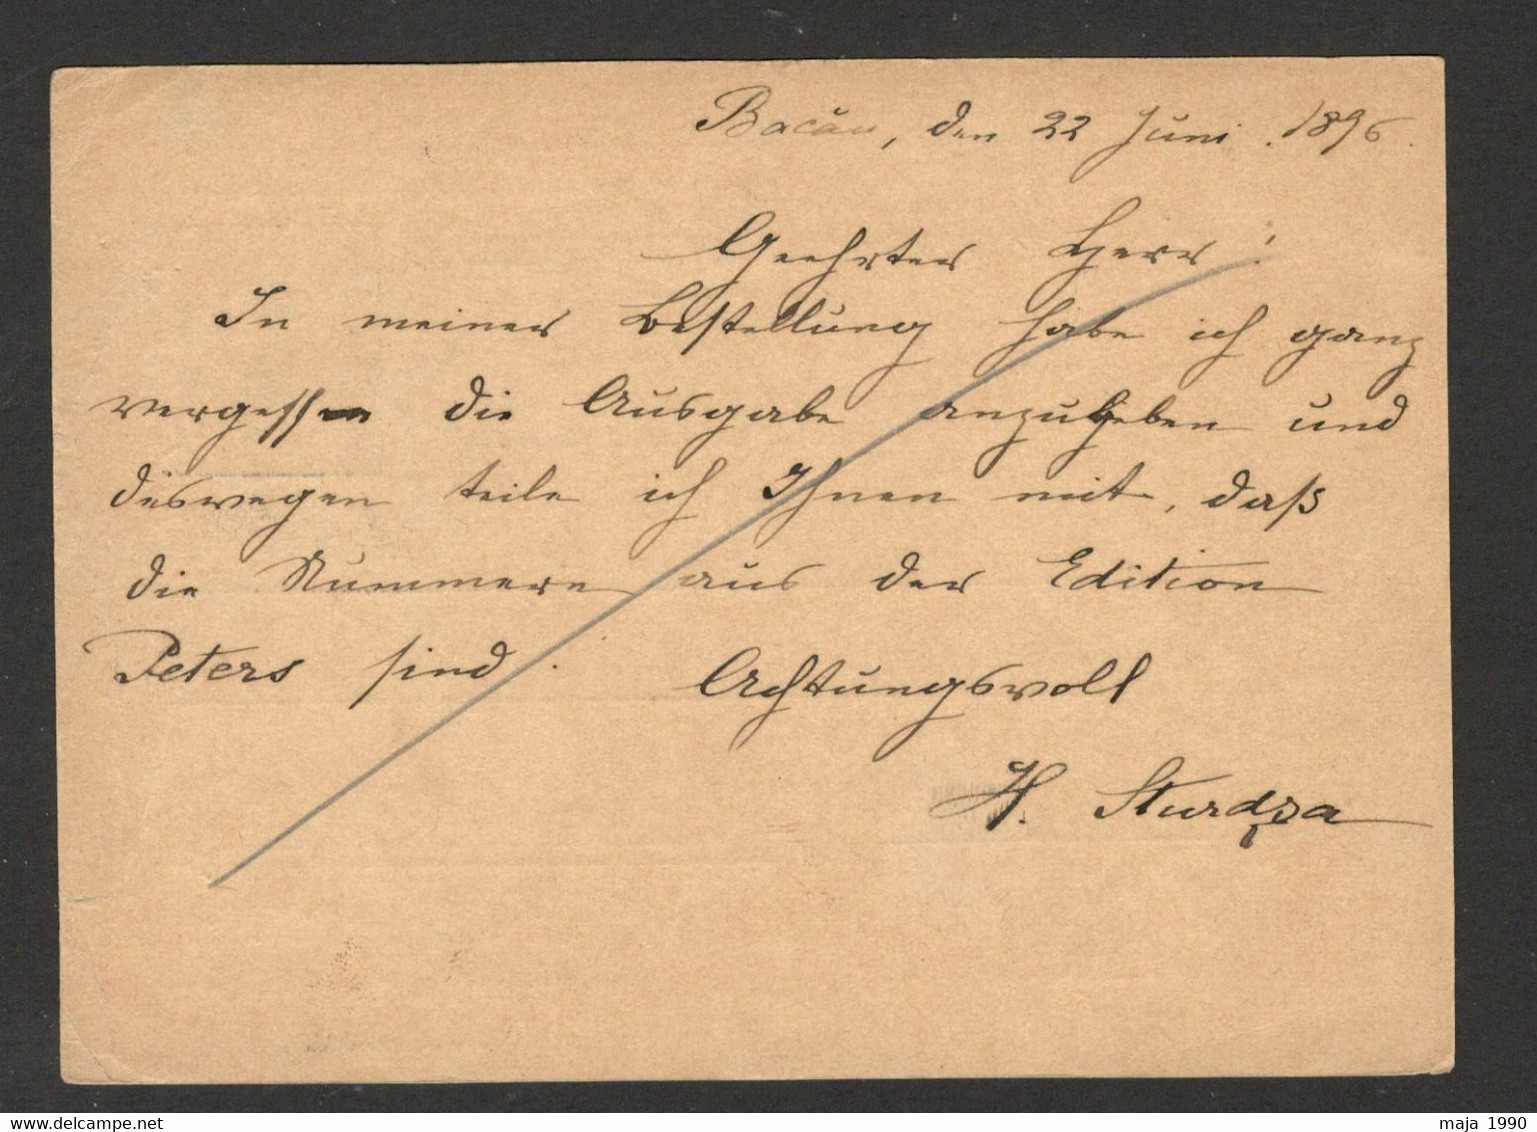 Bacău, den 22 Juni. 1896.
Geehrter Herr!
In meiner Bestellung habe ich ganz
vergessen die Ausgabe anzugeben und
deswegen teile ich Ihnen mit, daß
die Nummern aus der Edition
Peters sind.
Achtungsvoll
H. Sturdza
maja 1990
delcampe.net